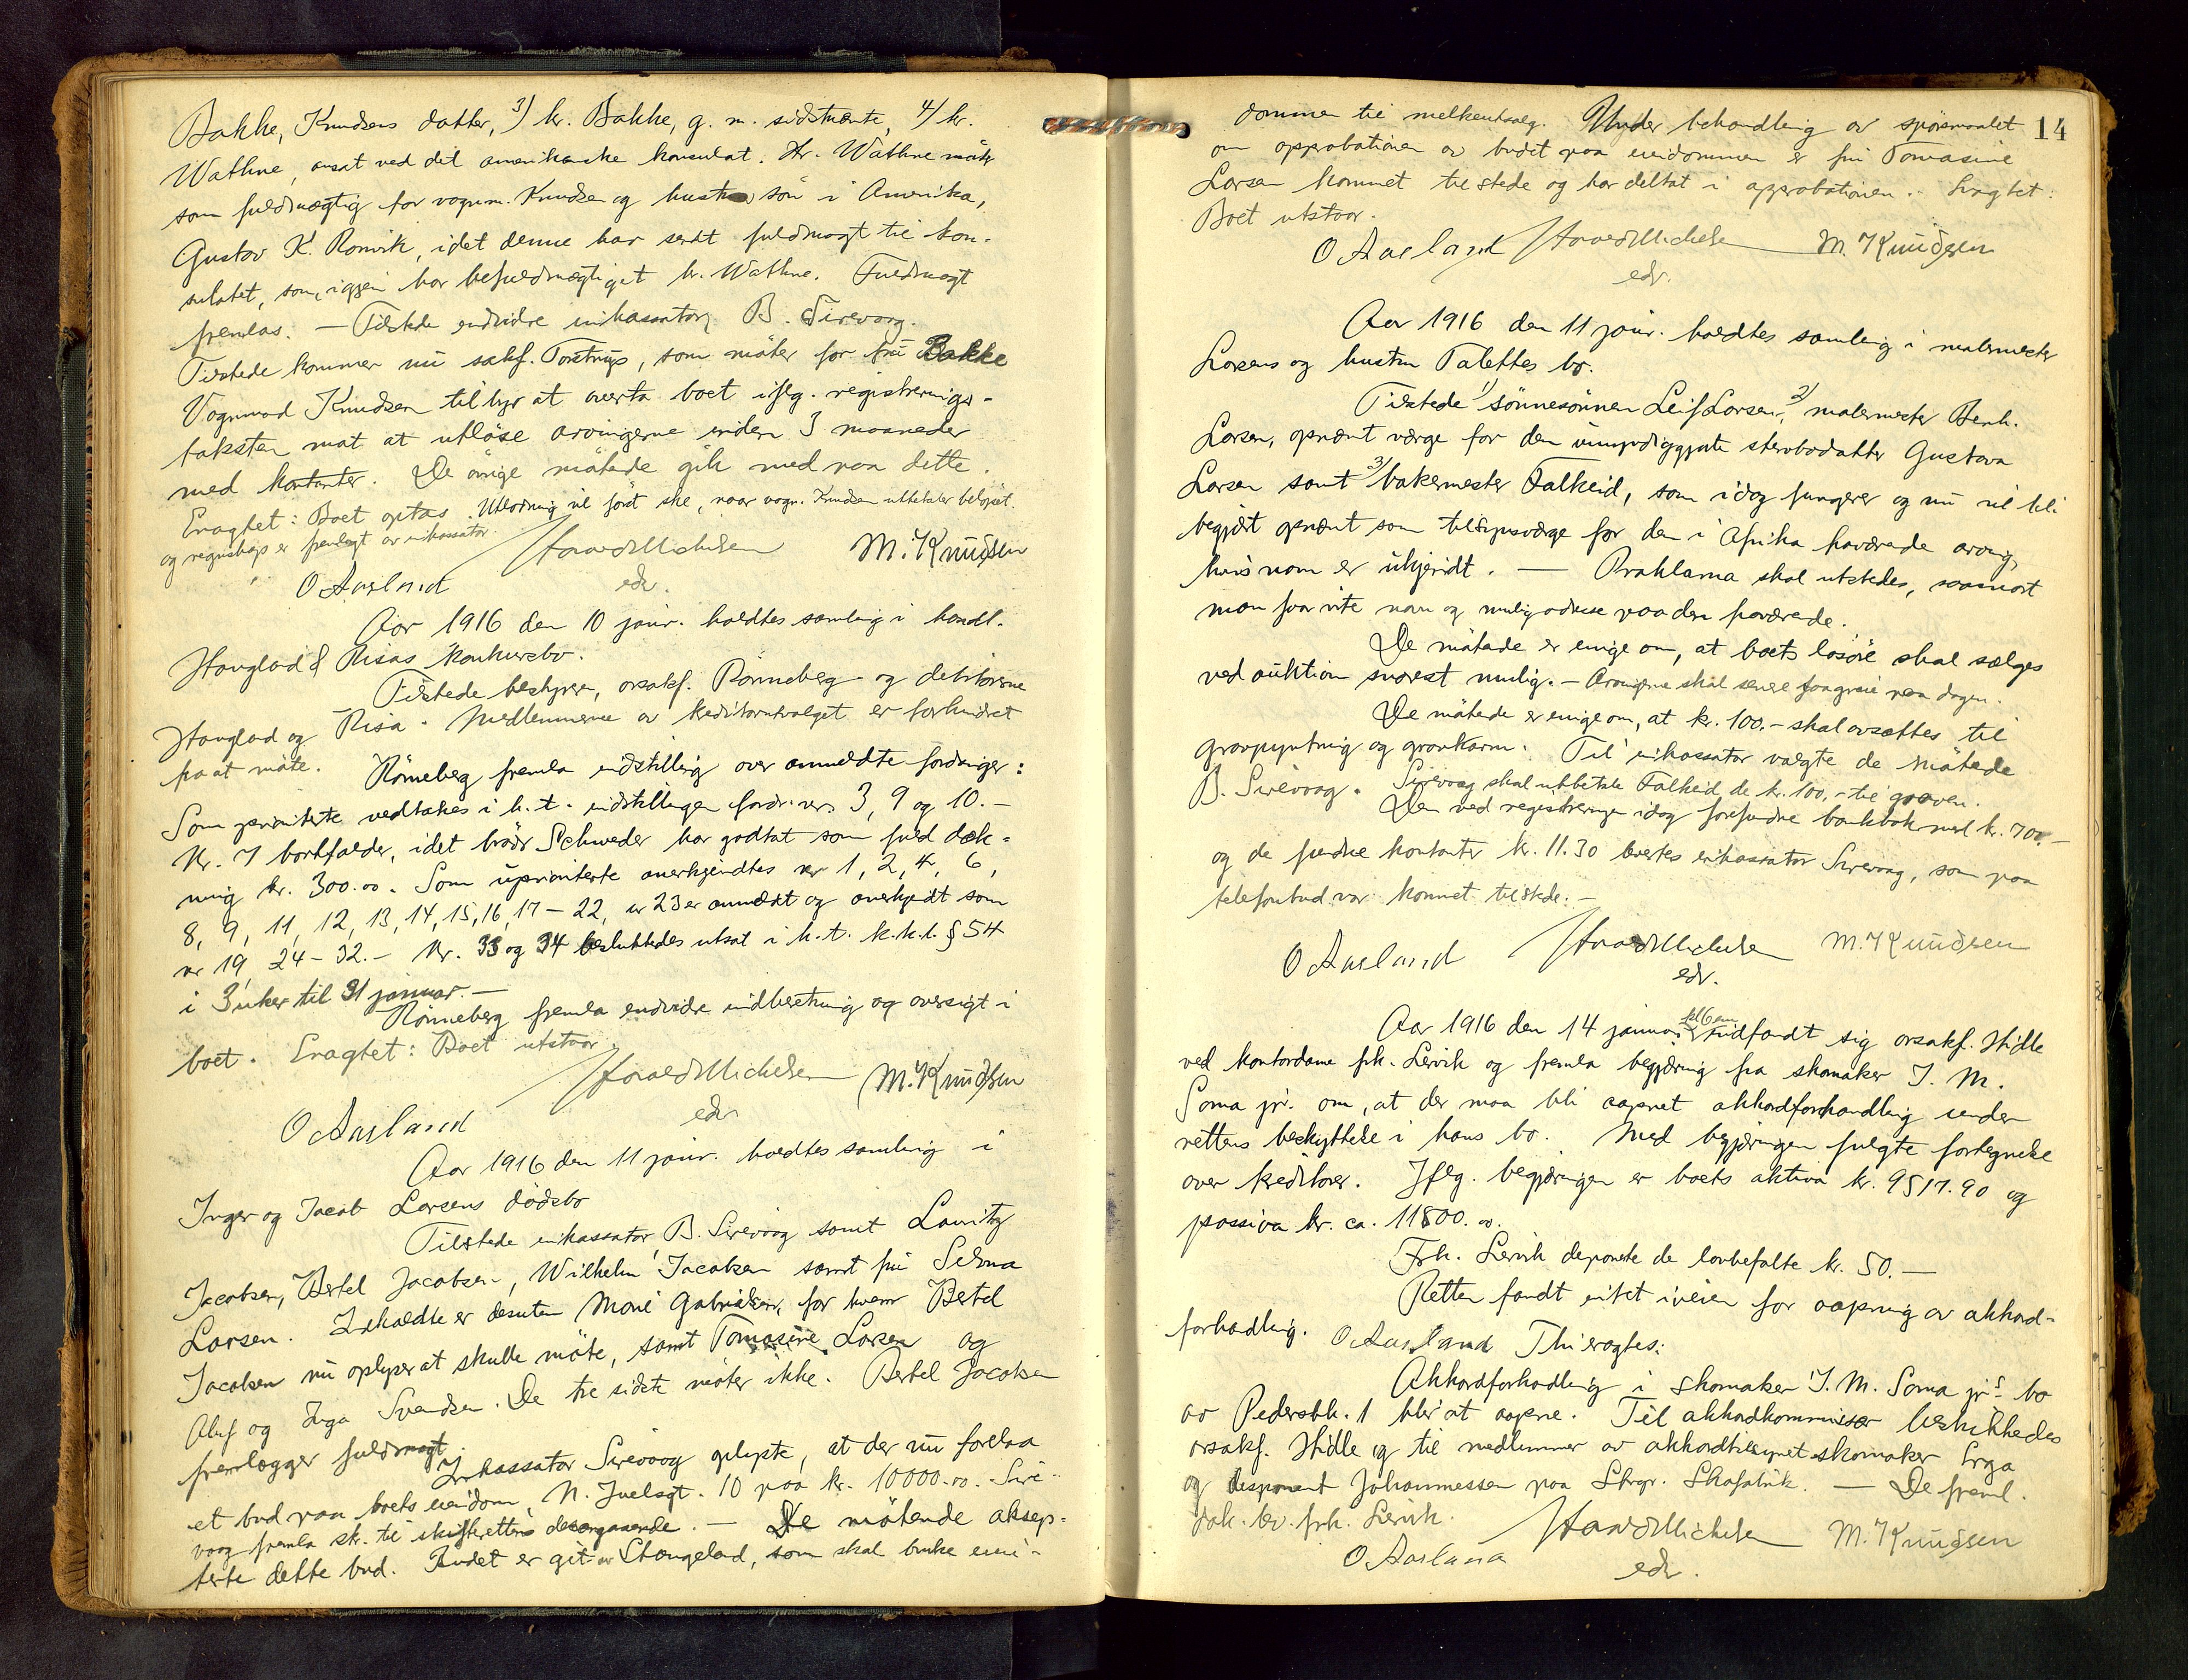 Bakke, Knudsens datter, 3) hr. Bakke, g. m. sidstnævnte, 4) hr.
Wathne, ansat ved det amerikanske konsulat. Hr. Wathne møter
som fuldmægtig for vognm. Knudsen og hustrus søn i Amerika,
Gustav K. Romvik, idet denne har sendt fuldmagt til kon-
sulatet, som igjen har befuldmægtiget hr. Wathne. Fuldmagt
fremlas. — Tilstede endvidre inkassator B. Sirevaag.
Tilstede kommer nu sakf. Torstrup, som møter for fru Bakke
Vognmand Knudsen tilbyr at overta boet iflg. registrerings-
taksten mot at utløse arvingerne inden 3 maaneder
med kontanter. De øvrige møtende gik med paa dette.
Eragtet: Boet optas. Utlodning vil først ske, naar vogn. Knudsen utbetaler beløpet.
og regnskap er fremlagt av inkassator.
O Aasland Harald Michelsen M. Knudsen
edv.
Aar 1916 den 10 janr. holdtes samling i handl.
Hauglad & Risas konkursbo.
Tilstede bestyrer, orsakf. Rønneberg og debitorerne
Hauglad og Risa. Medlemmerne av kreditorutvalget er forhindret
fra at møte. Rønneberg fremla indstilling over anmeldte fordringer:
Som prioriterte vedtakes i h. t. indstillingen fordr. nr. 3, 9 og 10. —
Nr. 7 bortfalder, idet brødr Schweder har godtat som fuld dæk-
ning kr. 300.00. Som uprioriterte anerkjendtes nr 1, 2, 4, 6,
8, 9, 11, 12, 13, 14, 15, 16, 17 – 22, nr 23 er anmeldt og anerkjendt som
nr 19, 24 – 32. — Nr. 33 og 34 besluttedes utsat i h. t. k.k.l. § 54
i 3 uker til 31 januar. —
Rønneberg fremla endvidre indberetning og oversigt i
boet. Eragtet: Boet utstaar.
Harald Michelsen M. Knudsen
O Aasland edv
Aar 1916 den 11 janr. holdtes samling i
Inger og Jacob Larsens dødsbo
Tilstede inkassator B. Sirevaag samt Lauritz
Jacobsen, Bertel Jacobsen, Wilhelm Jacobsen samt fru Selma
Larsen. Indkaldte er desuten Marie Gabrielsen, for hvem Bertel
Jacobsen nu oplyser at skulle møte, samt Tomasine Larsen og
Oluf og Inga Svendsen. De tre sidste møter ikke. Bertel Jacobsen
fremlægger fuldmagt.
Inkassator Sirevaag oplyste, at der nu forelaa
et bud paa boets eiendom, N. Juelsgt. 10 paa kr. 10000.00. Sire-
vaag fremla sk. til skifterettens
De møtende aksep-
terte dette bud. Budet er git av Stangeland, som skal bruke eien-
14
dommen til melkeutsalg. Under behandling av spørsmaalet
om approbationen av budet paa eiendommen er fru Tomasine
Larsen kommet tilstede og har deltat i approbationen. Eragtet:
Boet utstaar.
O Aasland Harald Michelsen M. Knudsen
edv.
Aar 1916 den 11 janr. holdtes samling i malermester
Larsens og hustru Talettes bo.
Tilstede 1) sønnesønnen Leif Larsen, 2) malermester Bernh.
Larsen, opnævnt værge for den umyndiggjorte sterbodatter Gustava
Larsen samt 3) bakermester Falkeid, som idag fungerer og nu vil bli
begjært opnævnt som tilsynsværge for den i Afrika fraværende arving,
hvis navn er ukjendt. — Proklama skal utstedes, saasnart
man faar vite navn og mulig adresse paa den fraværende.
De møtende er enige om, at boets løsøre skal sælges
ved auktion snarest mulig. — Arvingerne skal senere faa greie paa dagen.
De møtende er enige om, at kr. 100.- skal avsættes til
gravpyntning og gravkarm. Til inkassator valgte de møtende
B. Sirevaag. Sirevaag skal utbetale Falkeid de kr. 100.- til graven.
Den ved registreringen idag forefundne bankbok med kr. 700. —
og de fundne kontanter kr. 11.30 leveres inkassator Sirevaag, som paa
telefonbud var kommet tilstede. —
O Aasland Harald Michelsen M. Knudsen
edv.
Aar 1916 den 14 januar kl 6 em indfandt sig orsakf. Hidle
ved kontordame frk. Lervik og fremla begjæring fra skomaker J. M.
Soma jr. om, at der maa bli aapnet akkordforhandling under
rettens beskyttelse i hans bo. Med begjæringen fulgte fortegnelse
over kreditorer. Iflg. begjæringen er boets aktiva kr. 9517.90 og
passiva kr. ca. 11800.00.
Frk. Lervik deponerte de lovbefalte kr. 50. —
Retten fandt intet iveien for aapning av akkord-
forhandling. O Aasland Thi eragtes:
Akkordforhandling i skomaker J. M. Soma jr's bo
av Pedersbk. 1 blir at aapne. Til akkordkommissær beskikkedes
orsakf. Hidle og til medlemmer av akkordtilsynet skomaker Erga
og disponent Johannessen paa Stvgr. Skofabrik. — De freml.
dok. lev. frk. Lervik.
O Aasland Harald Michelsen M. Knudsen
edv.